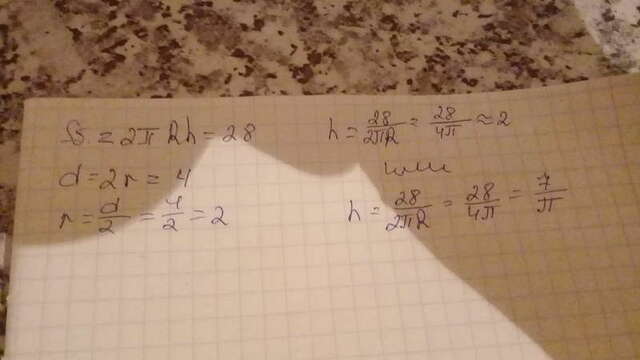 S = 2πRh = 28
d = 2r = 4
r = d/2 = 4/2 = 2
h = 28/2πR = 28/4π ≈ 2
или
h = 28/2πR = 28/4π = 7/π